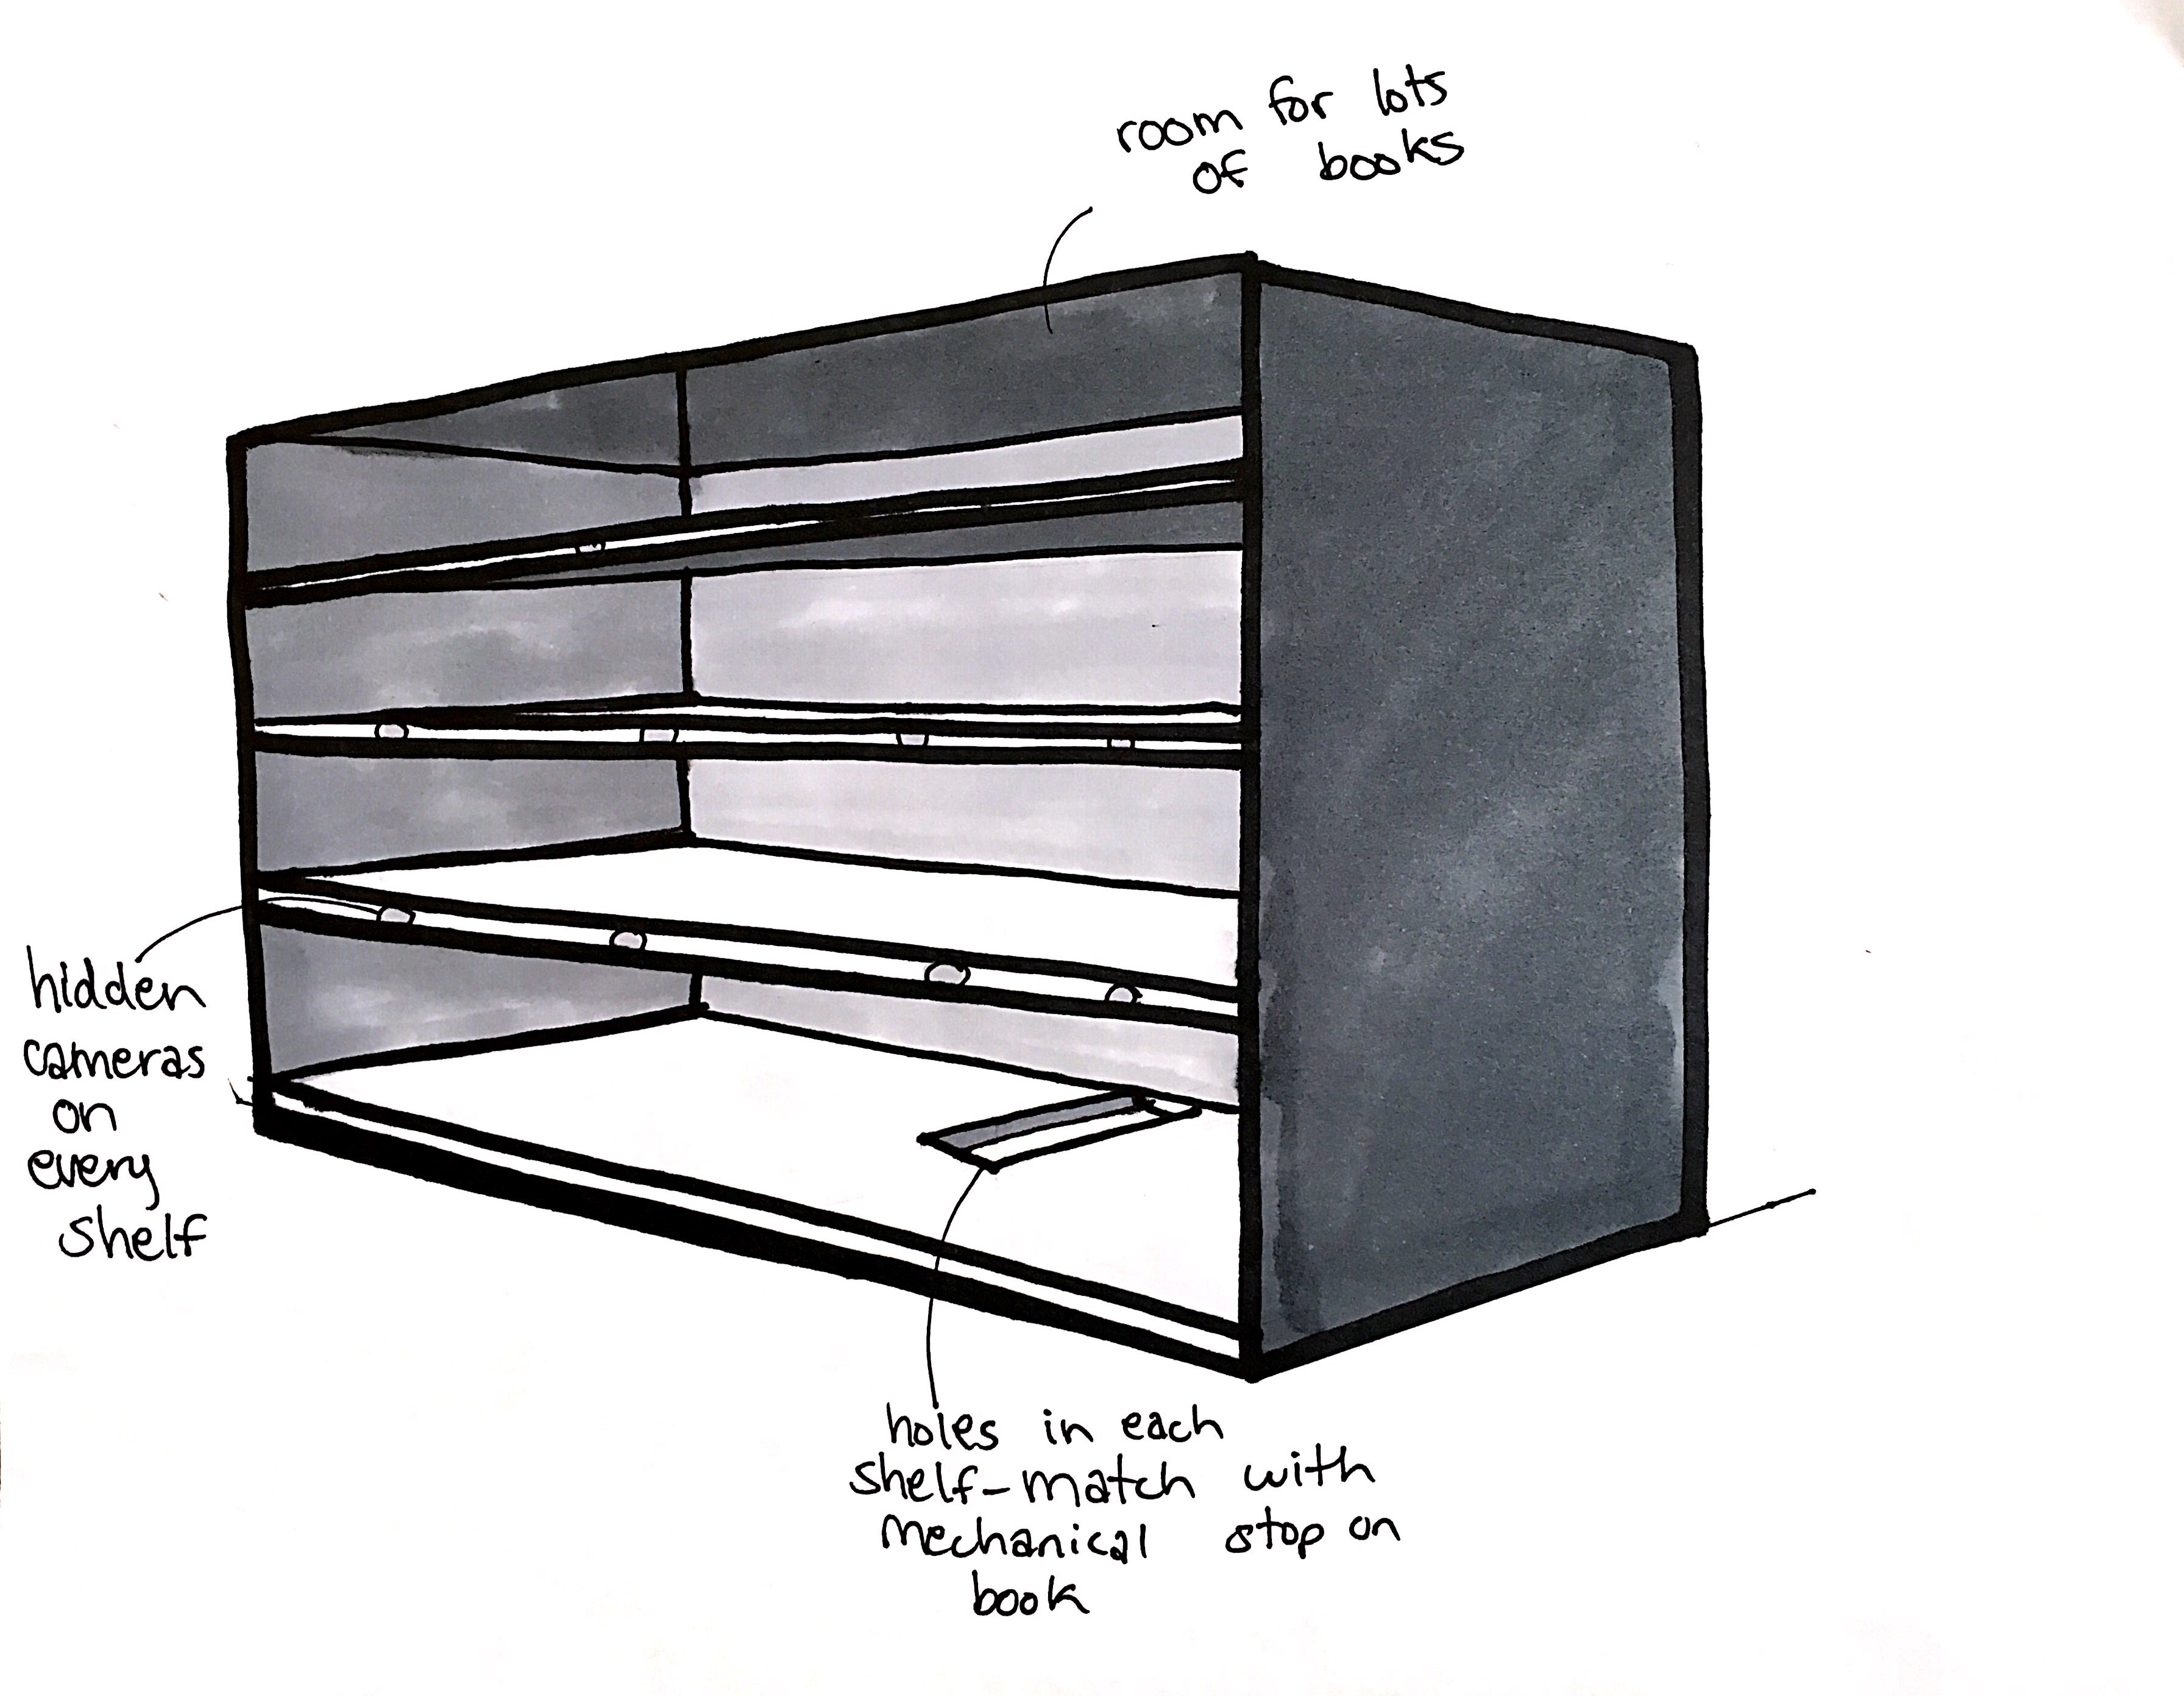 room for lots
of books
hidden
cameras
on
every
shelf
holes in each
shelf-match with
mechanical stop on
book